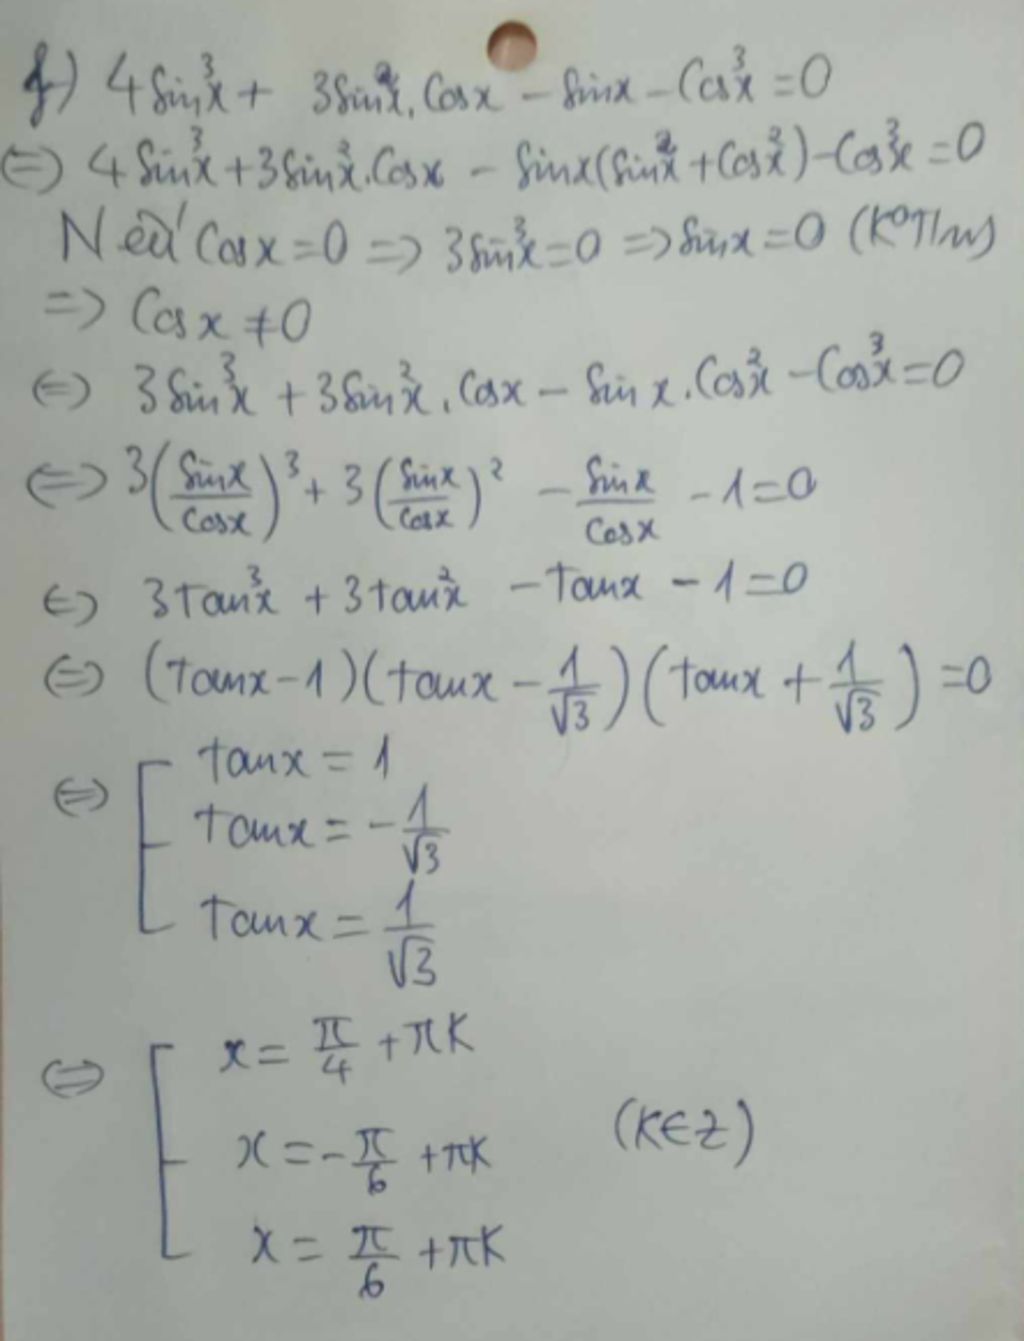 f) 4 sin³x + 3sin²x. Cosx − sinx − Cos³x = 0
⇔ 4 sin³x + 3 sin²x. Cosx − sinx(sin²x + Cos²x) − Cos³x = 0
Nếu Cosx = 0 => 3 sin³x = 0 => sinx = 0 (K°T/m)
=> Cosx ≠ 0
⇔ 3 sin³x + 3 sin²x. Cosx − sin x. Cos²x − Cos³x = 0
⇔ 3(sinx/cosx)³ + 3(sinx/cosx)² − sinx/cosx − 1 = 0
⇔ 3tan³x + 3tan²x − tanx − 1 = 0
⇔ (tanx − 1)(tanx − 1/√3)(tanx + 1/√3) = 0
⇔ [ tanx = 1
tanx = −1/√3
tanx = 1/√3
⇔ [ x = π/4 + πK
x = −π/6 + πK (K∈Z)
x = π/6 + πK